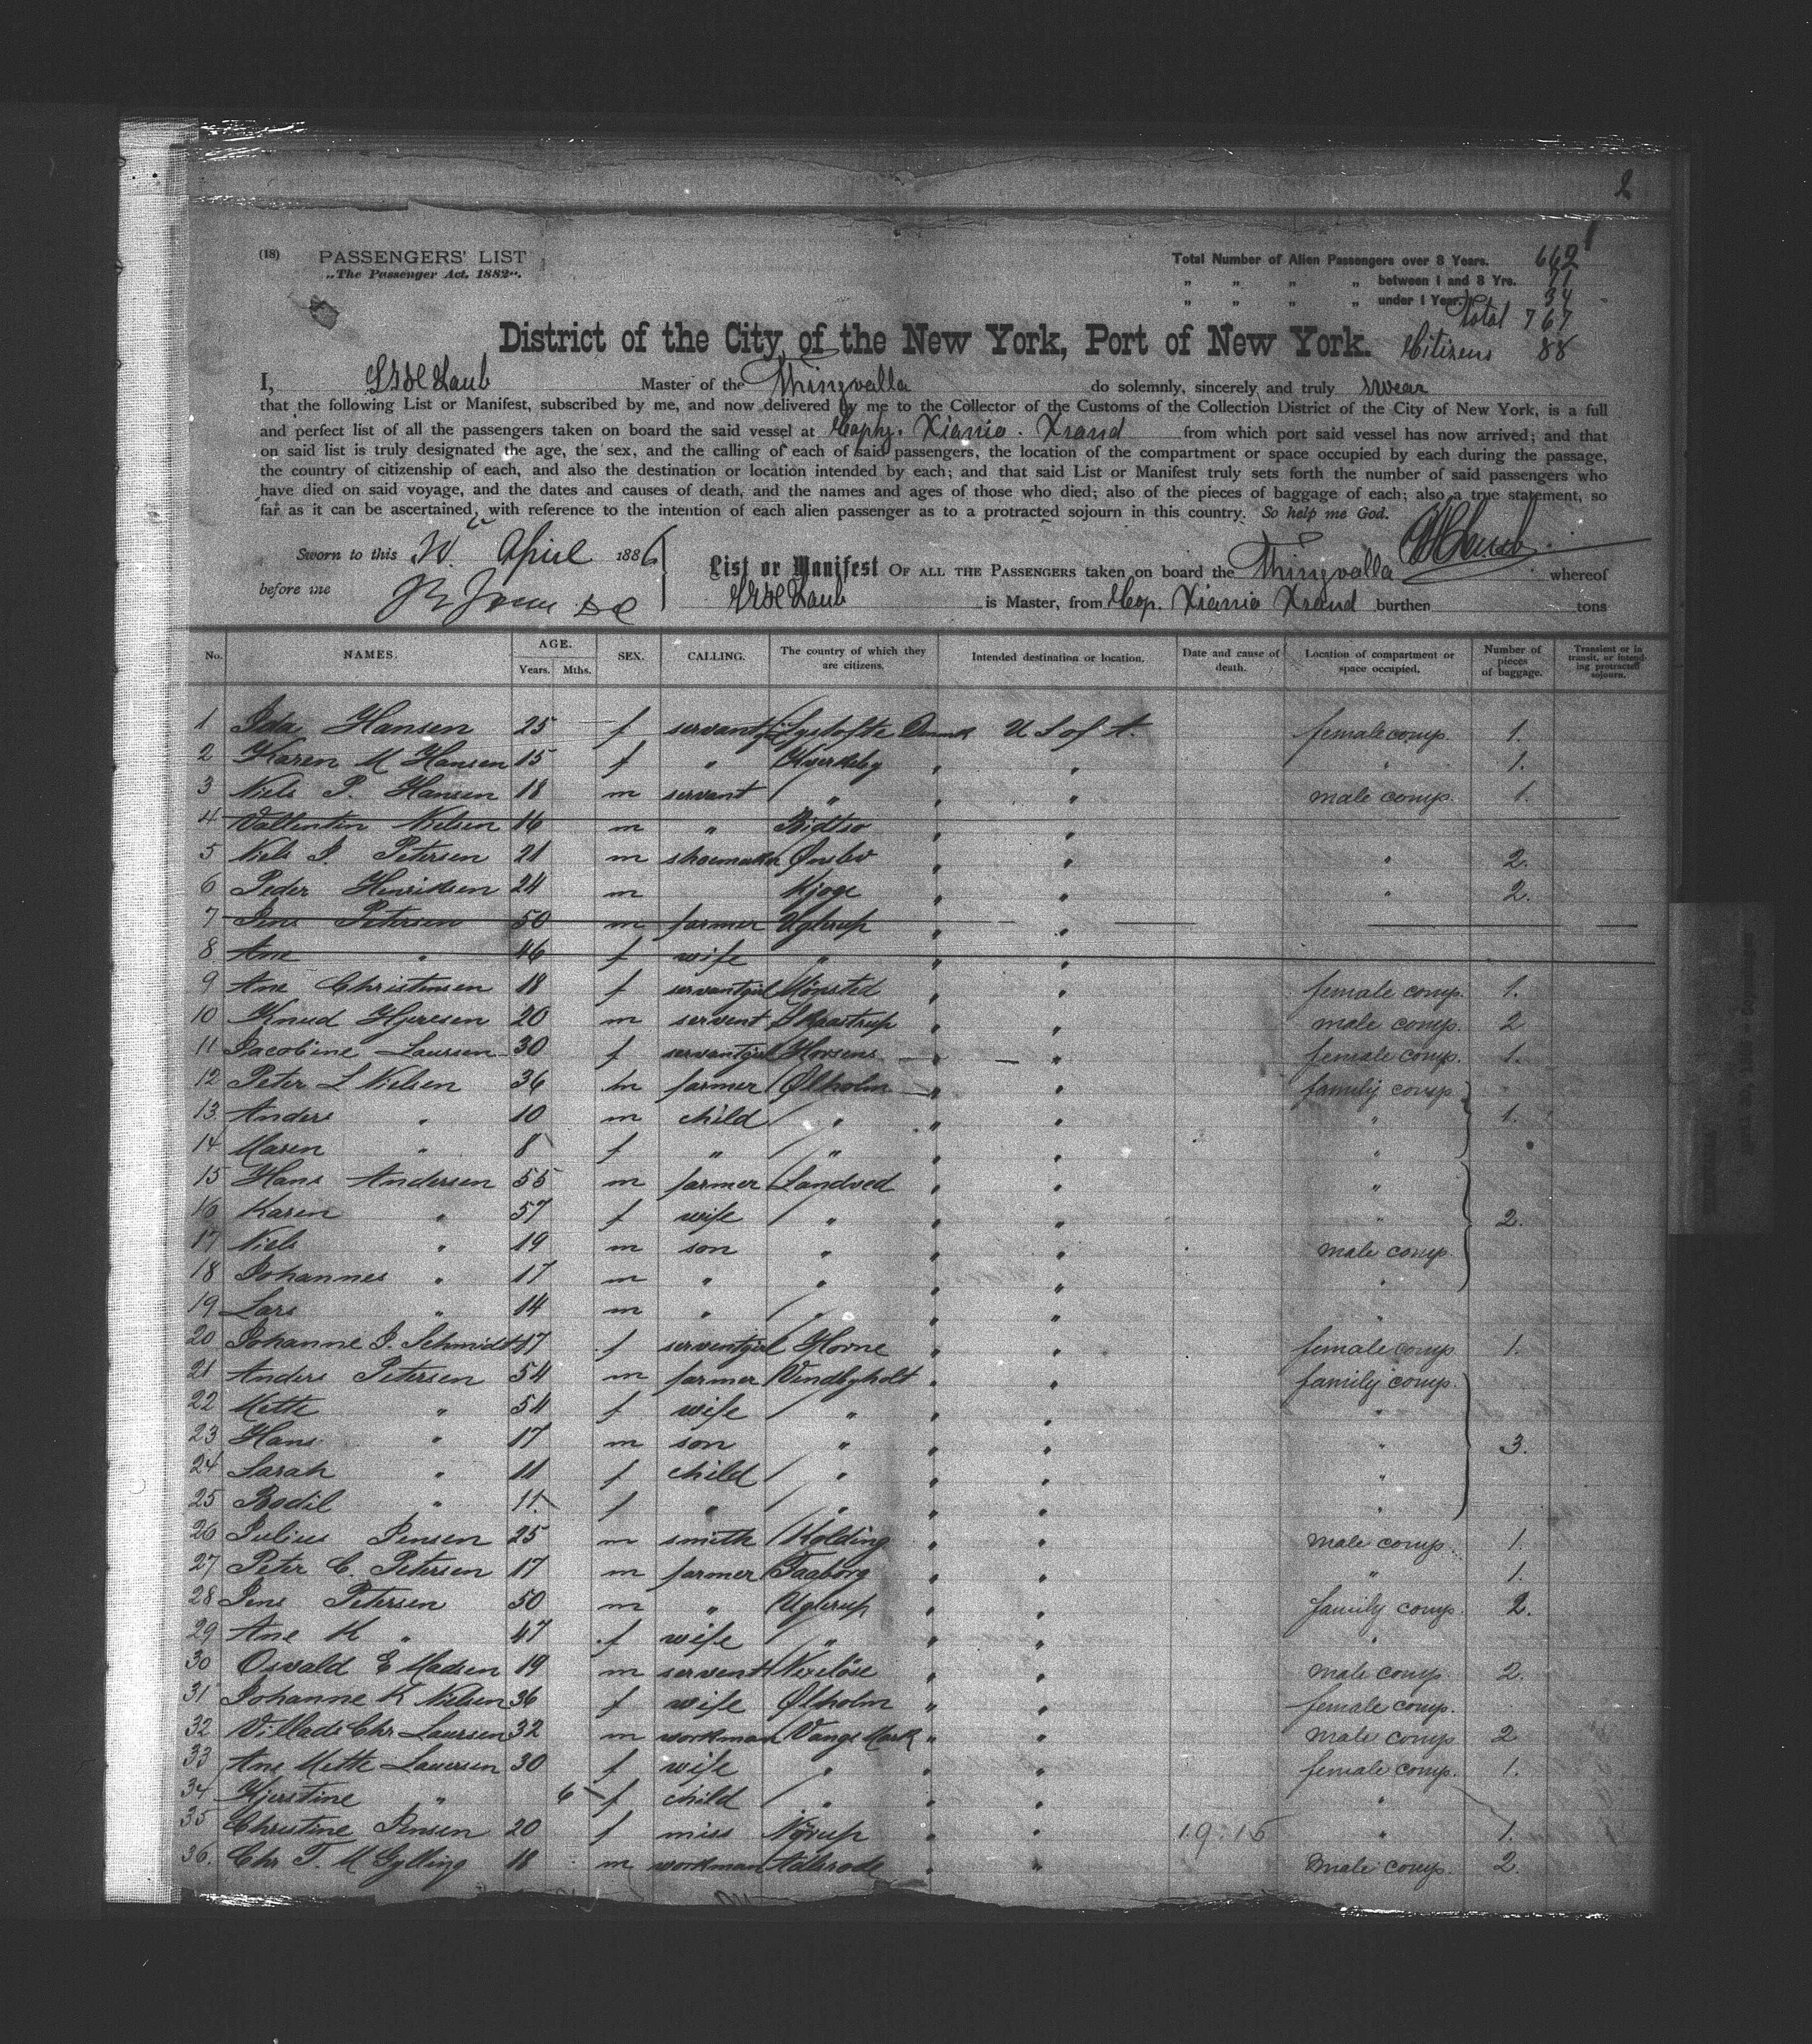 2
1
(18) PASSENGERS' LIST
„The Passenger Act, 1882“.
Total Number of Alien Passengers over 8 Years. 662
„ „ „ „ between 1 and 8 Yrs. 71
„ „ „ „ under 1 Year. 34
Total 767
District of the City of the New York, Port of New York. Citizens 88
I, Laub Master of the Thingvalla do solemnly, sincerely and truly swear
that the following List or Manifest, subscribed by me, and now delivered by me to the Collector of the Customs of the Collection District of the City of New York, is a full
and perfect list of all the passengers taken on board the said vessel at Coph. Xiania. Xsand from which port said vessel has now arrived; and that
on said list is truly designated the age, the sex, and the calling of each of said passengers, the location of the compartment or space occupied by each during the passage,
the country of citizenship of each, and also the destination or location intended by each; and that said List or Manifest truly sets forth the number of said passengers who
have died on said voyage, and the dates and causes of death, and the names and ages of those who died; also of the pieces of baggage of each; also a true statement, so
far as it can be ascertained, with reference to the intention of each alien passenger as to a protracted sojourn in this country. So help me God.
Sworn to this April 1886
before me
List or Manifest OF ALL THE PASSENGERS taken on board the Thingvalla whereof
Laub is Master, from Cop. Xiania Xsand burthen tons
No. NAMES. AGE. Years. Mths. SEX. CALLING. The country of which they are citizens. Intended destination or location. Date and cause of death. Location of compartment or space occupied. Number of pieces of baggage. Transient or in transit, or intending protracted sojourn.
1 Ida Hansen 25 f servant Lystofte Danmk U S of A. female comp. 1.
2 Karen M Hansen 15 f " Kyerkeby " " " 1.
3 Niels P. Hansen 18 m servant " " " male comp. 1.
4 Vallentin Nielsen 16 m " " "
5 Niels J. Petersen 21 m shoemaker Ønslev " " " 2.
6 Peder Henriksen 24 m Kjoge " " " 2.
7 Jens Petersen 50 m farmer Uglerup " "
8 Ane " 46 f wife " " "
9 Ane Christensen 18 f servantgirl Mønsted " " female comp. 1.
10 Knud Hjeresen 20 m servent " " male comp. 2
11 Jacobine Laursen 30 f servantgirl Horsens " " female comp. 1.
12 Peter L Nielsen 36 m farmer Ølholm " " family comp.
13 Anders " 10 m child " " " " 1.
14 Maren " 8 f " " " " "
15 Hans Andersen 55 m farmer Landved " " "
16 Karen " 57 f wife " " " " 2.
17 Niels " 19 m son " " " male comp.
18 Johannes " 17 m " " " " "
19 Lars " 14 m " " " " "
20 Johanne J. Schmidt 17 f serventgirl Horne " " female comp. 1.
21 Anders Petersen 54 m farmer Vendbyholt " " family comp.
22 Mette " 54 f wife " " " "
23 Hans " 17 m son " " " " 3.
24 Sarah " 11 f child " " " "
25 Bodil " 11 f " " " " "
26 Julius Jensen 25 m smith Kolding " " male comp. 1.
27 Peter C. Petersen 17 m farmer Faaborg " " " 1.
28 Jens Petersen 50 m " Uglerup " " family comp. 2.
29 Ane K " 47 f wife " " " "
30 Osvald E Madsen 19 m servent " " male comp. 2.
31 Johanne K Nielsen 36 f wife Ølholm " " female comp.
32 Villads Chr Laursen 32 m workman Vange Mark " " male comp 2
33 Ane Mette Lauersen 30 f wife " " " female comp. 1.
34 Kjerstine " 6 f child " " " "
35 Christine Jensen 20 f miss Nørup " " 19.15 " 1.
36. Chr T. M Gylling 18 m workman " " male comp. 2.